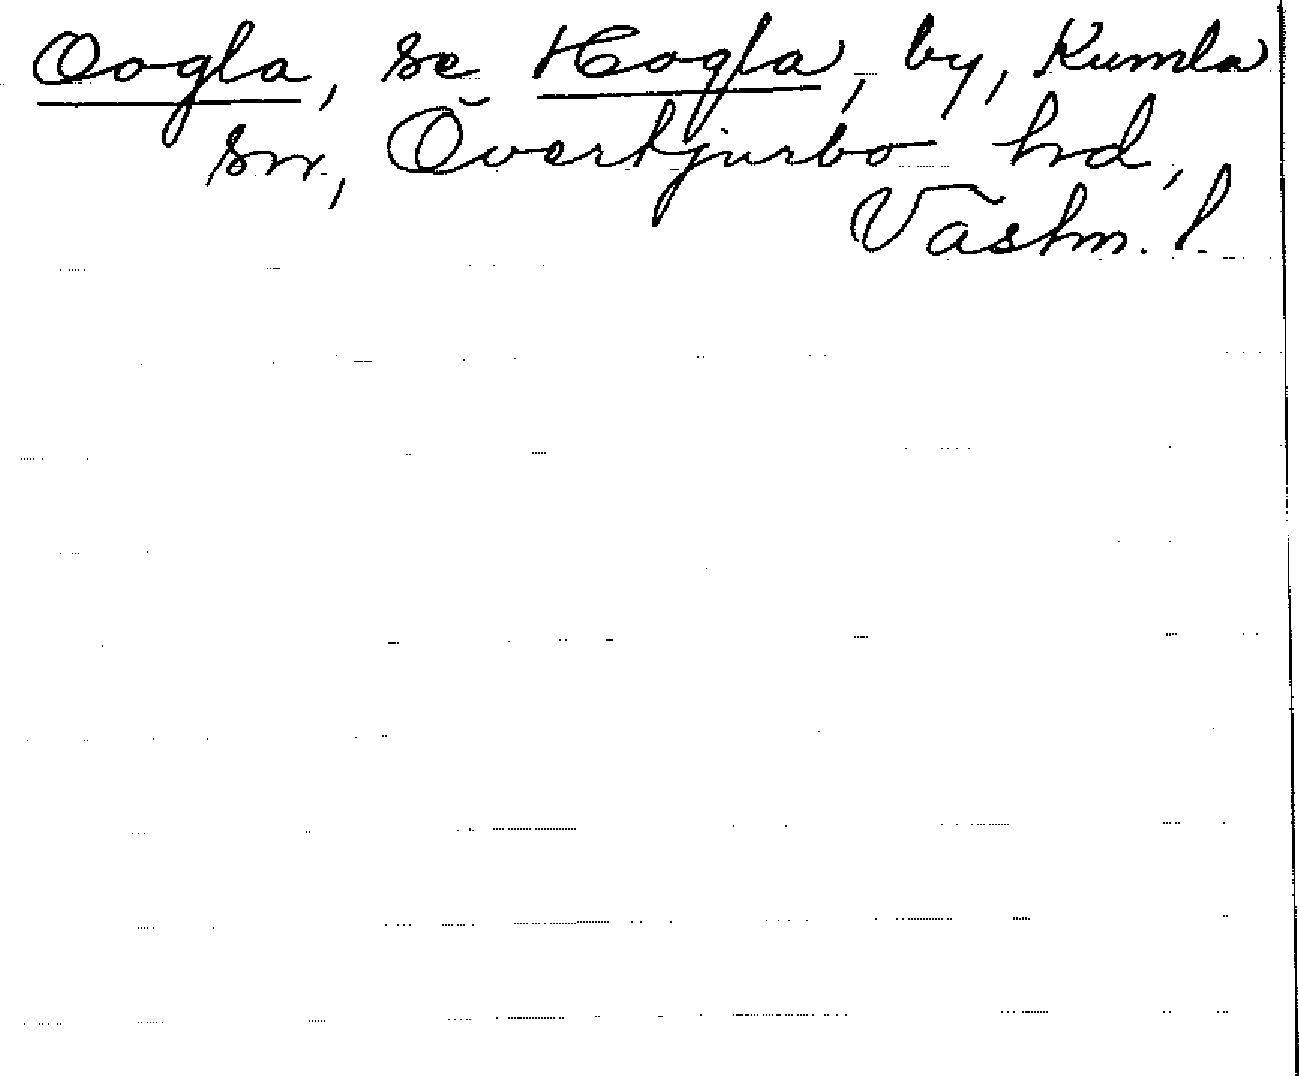 Oogla, se Hogla, by, Kumla
sn, Övertjurbo hd,
Västm. l.